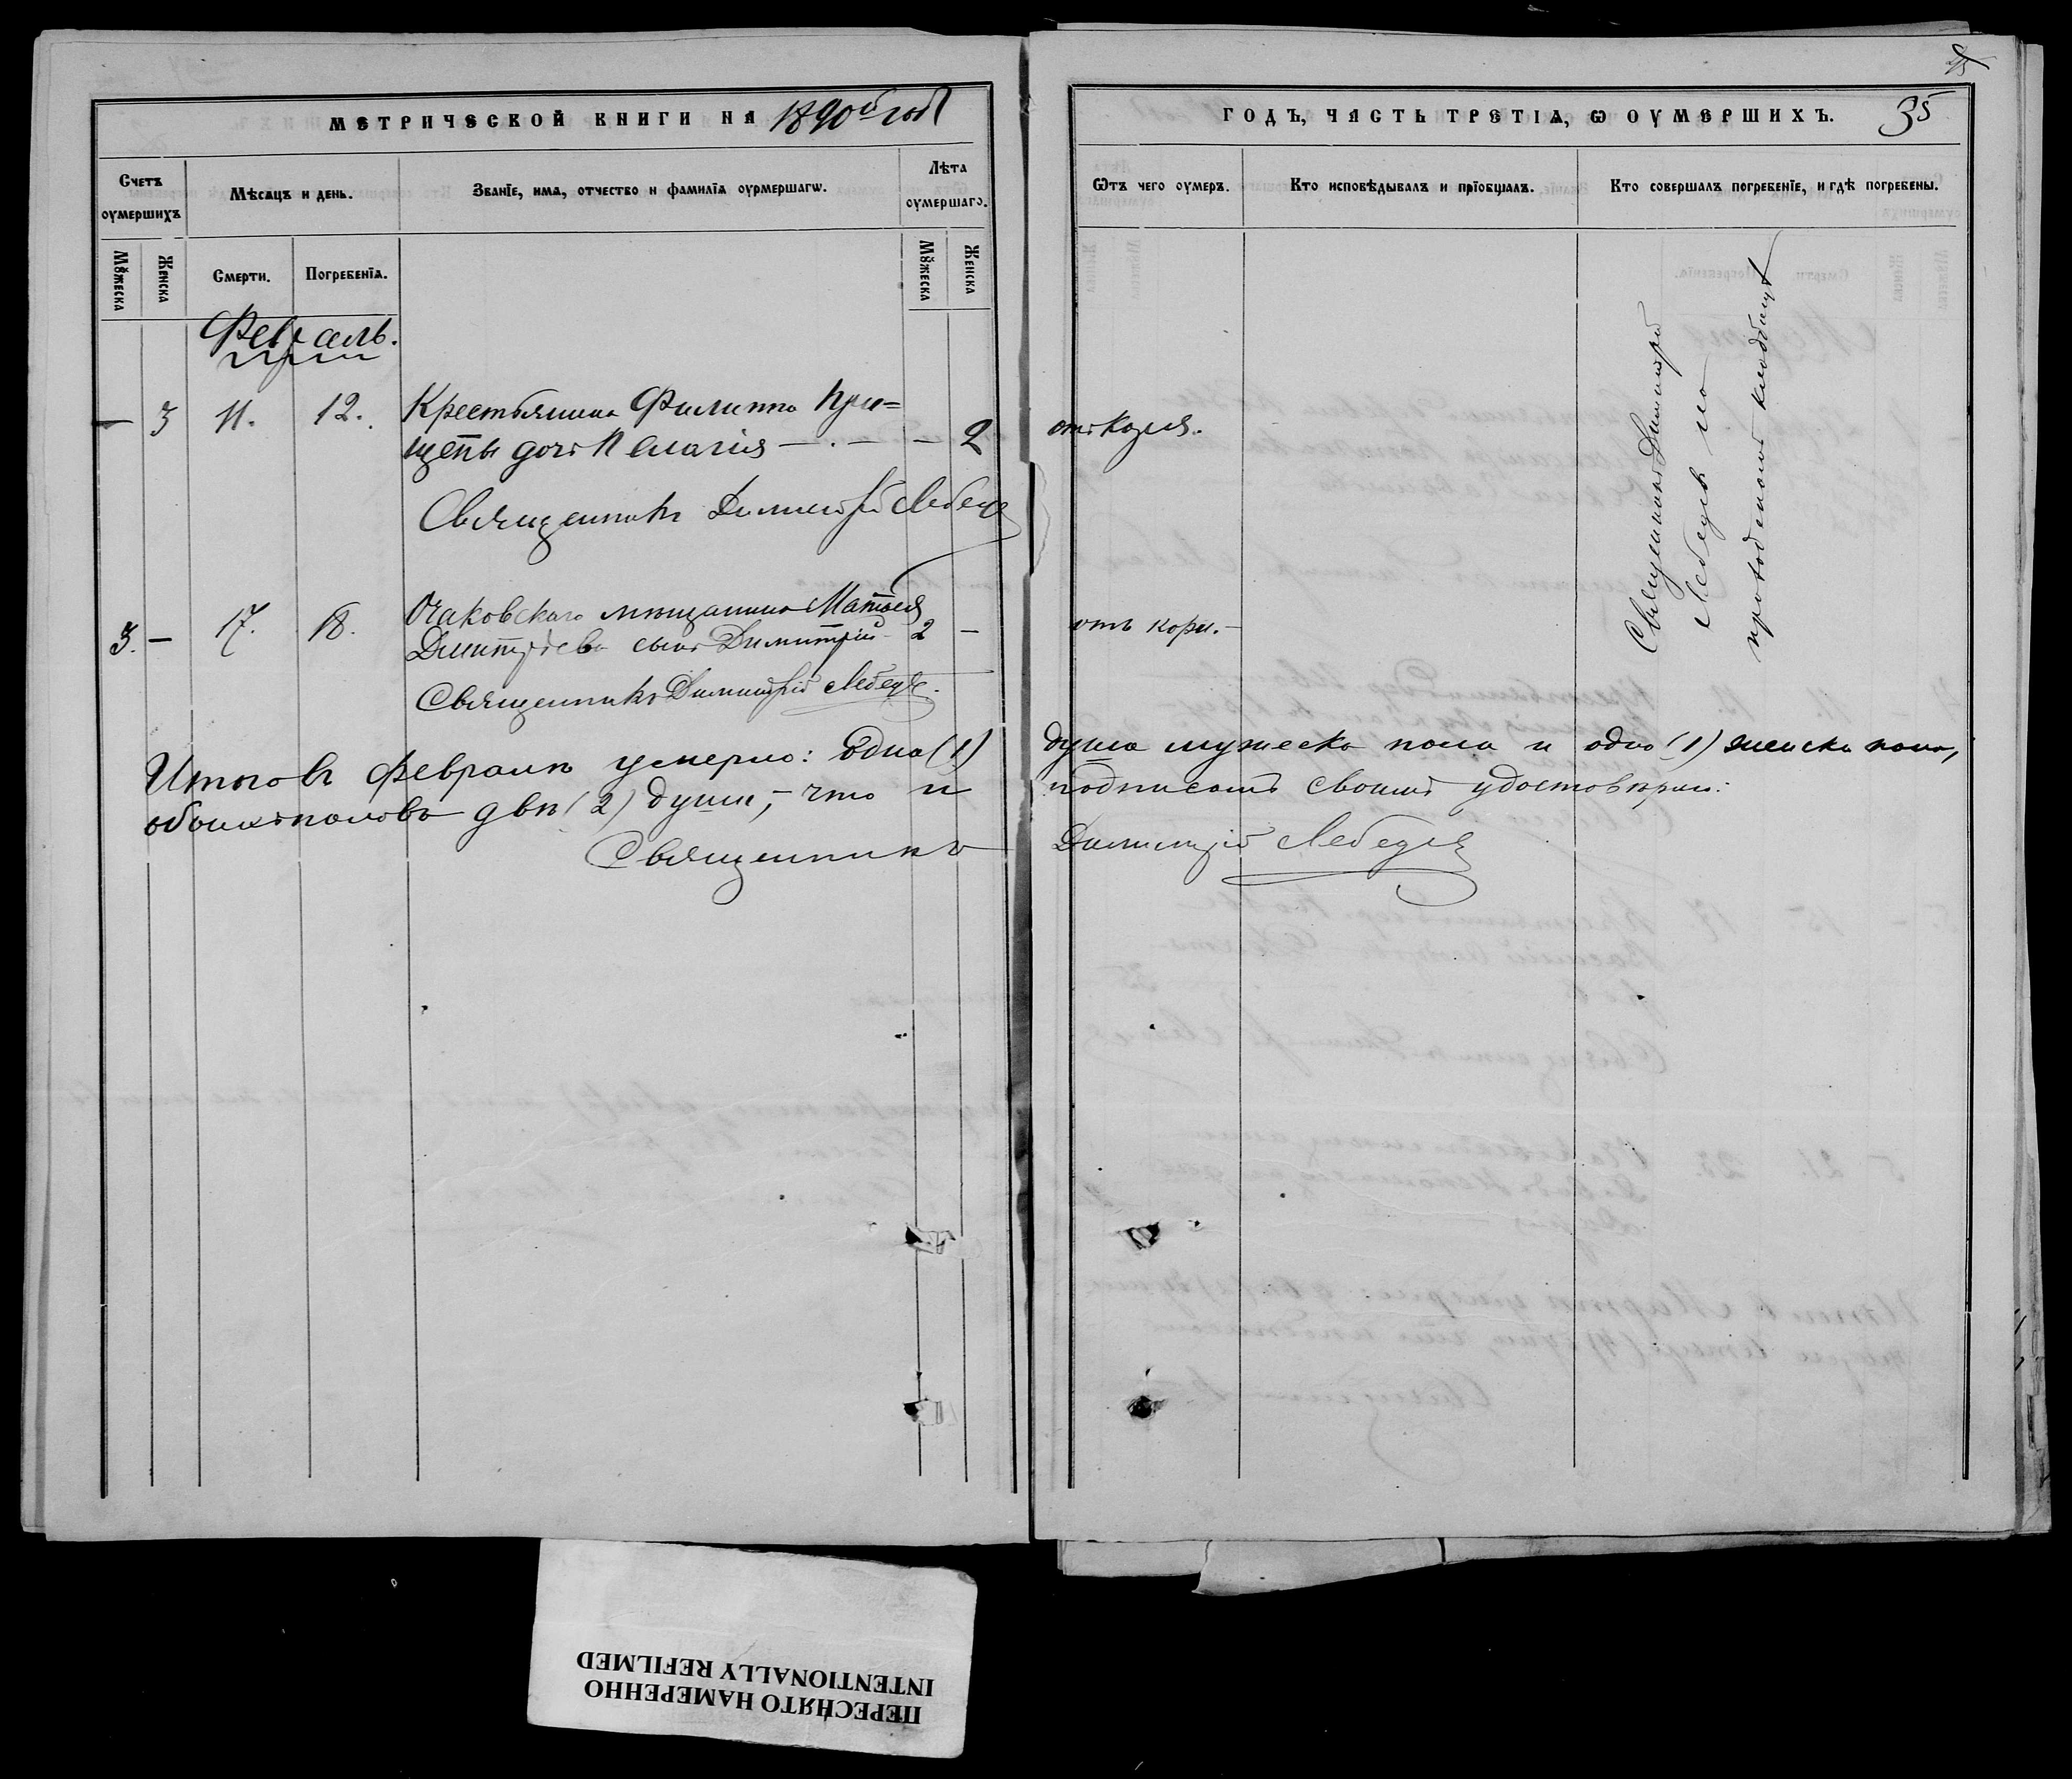 МЕТРИЧЕСКОЙ КНИГИ НА 1890й годъ
Счетъ оумершихъ
Мѣсяцъ и день.
Званїе, имя, отчество и фамилїя оурмершагѡ.
Лѣта оумершаго.
Мꙋжеска
Женска
Смерти.
Погребенїя.
Мꙋжеска
Женска
Февраль.
— 3 11. 12. Крестьянина Филиппа
дочь Пелагія — . — — 2
Священникъ Димитрій Лебедев
3. — 17. 18. Очаковскаго мѣщанина Матвея
Дмитріева сынъ Димитрій 2 —
Священникъ Димитрій Лебедев.
Итого въ Февралѣ умерло: одна (1)
обоихъ половъ двѣ (2) души, – что и
Священникъ
25
ГОДЪ, ЧАСТЬ ТРЕТІѦ, Ѡ ОУМЕРШИХЪ. 35
Ѿтъ чего оумеръ.
Кто исповѣдывалъ и прїобщалъ.
Кто совершалъ погребенїе, и гдѣ погребены.
отъ
отъ кори. –
Священникъ Димитрій
Лебедев на
приходскомъ кладбищѣ
душа мужеска пола и одна (1) женска пола,
подписомъ своимъ удостовѣряю:
Димитрій Лебедев
ПЕРЕСНЯТО НАМЕРЕННО
INTENTIONALLY REFILMED